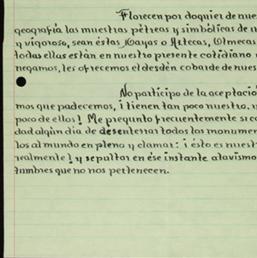 Florecen por doquier de nues
geografía las muestras pétreas y simbólicas de n
y vigoroso, sean éstas Mayas o Aztecas, Olmecas
todas ellas están en nuestro presente cotidiano
negamos, les ofrecemos el desdén cobarde de nues
No participo de la aceptació
mos que padecemos, ¡ tienen tan poco nuestro. 
poco de ellos! Me pregunto frecuentemente si co
dad algún día de desenterrar todos los monumen
los al mundo en pleno y clamar: ¡ésto es nuestr
realmente! y sepultar en ése instante atavismo
tumbres que no nos pertenecen.